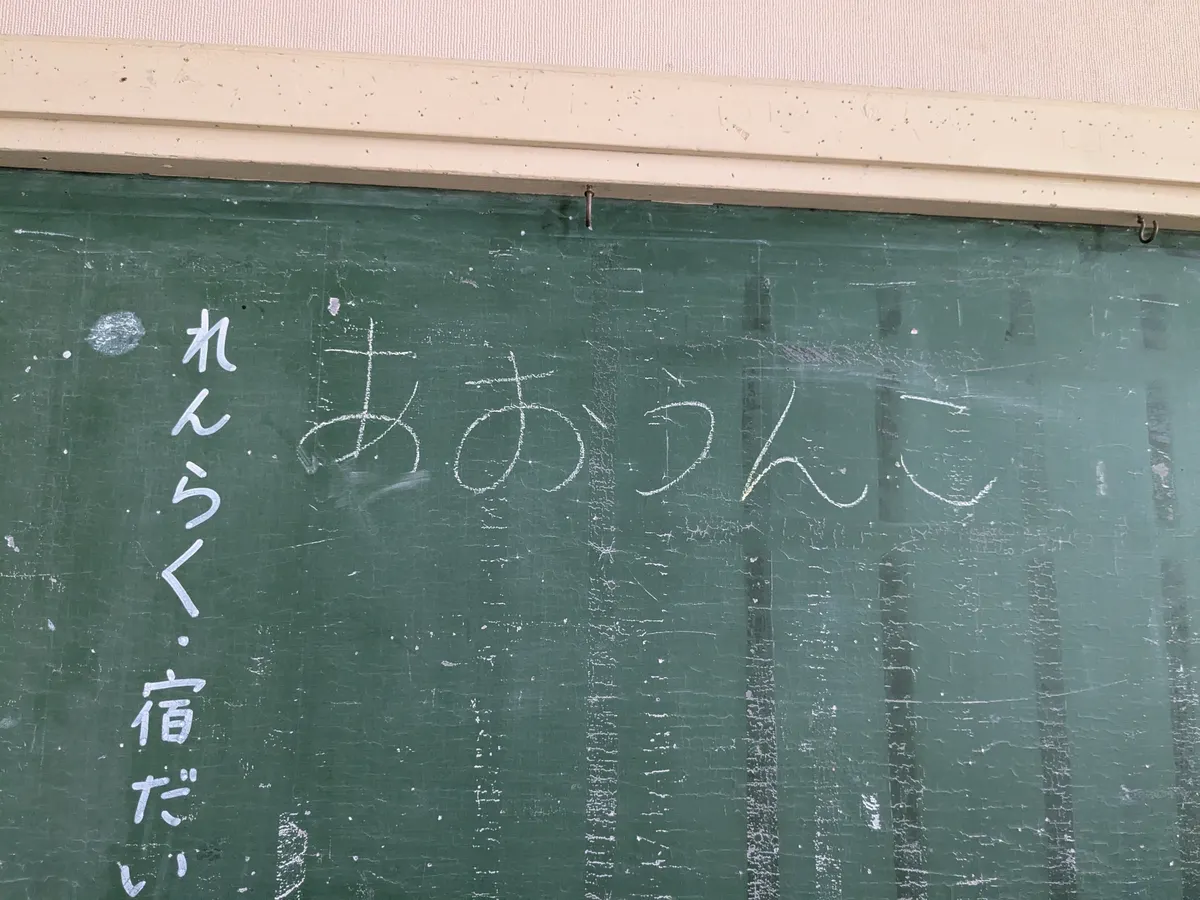 れんらく・宿だい
あおうんこ